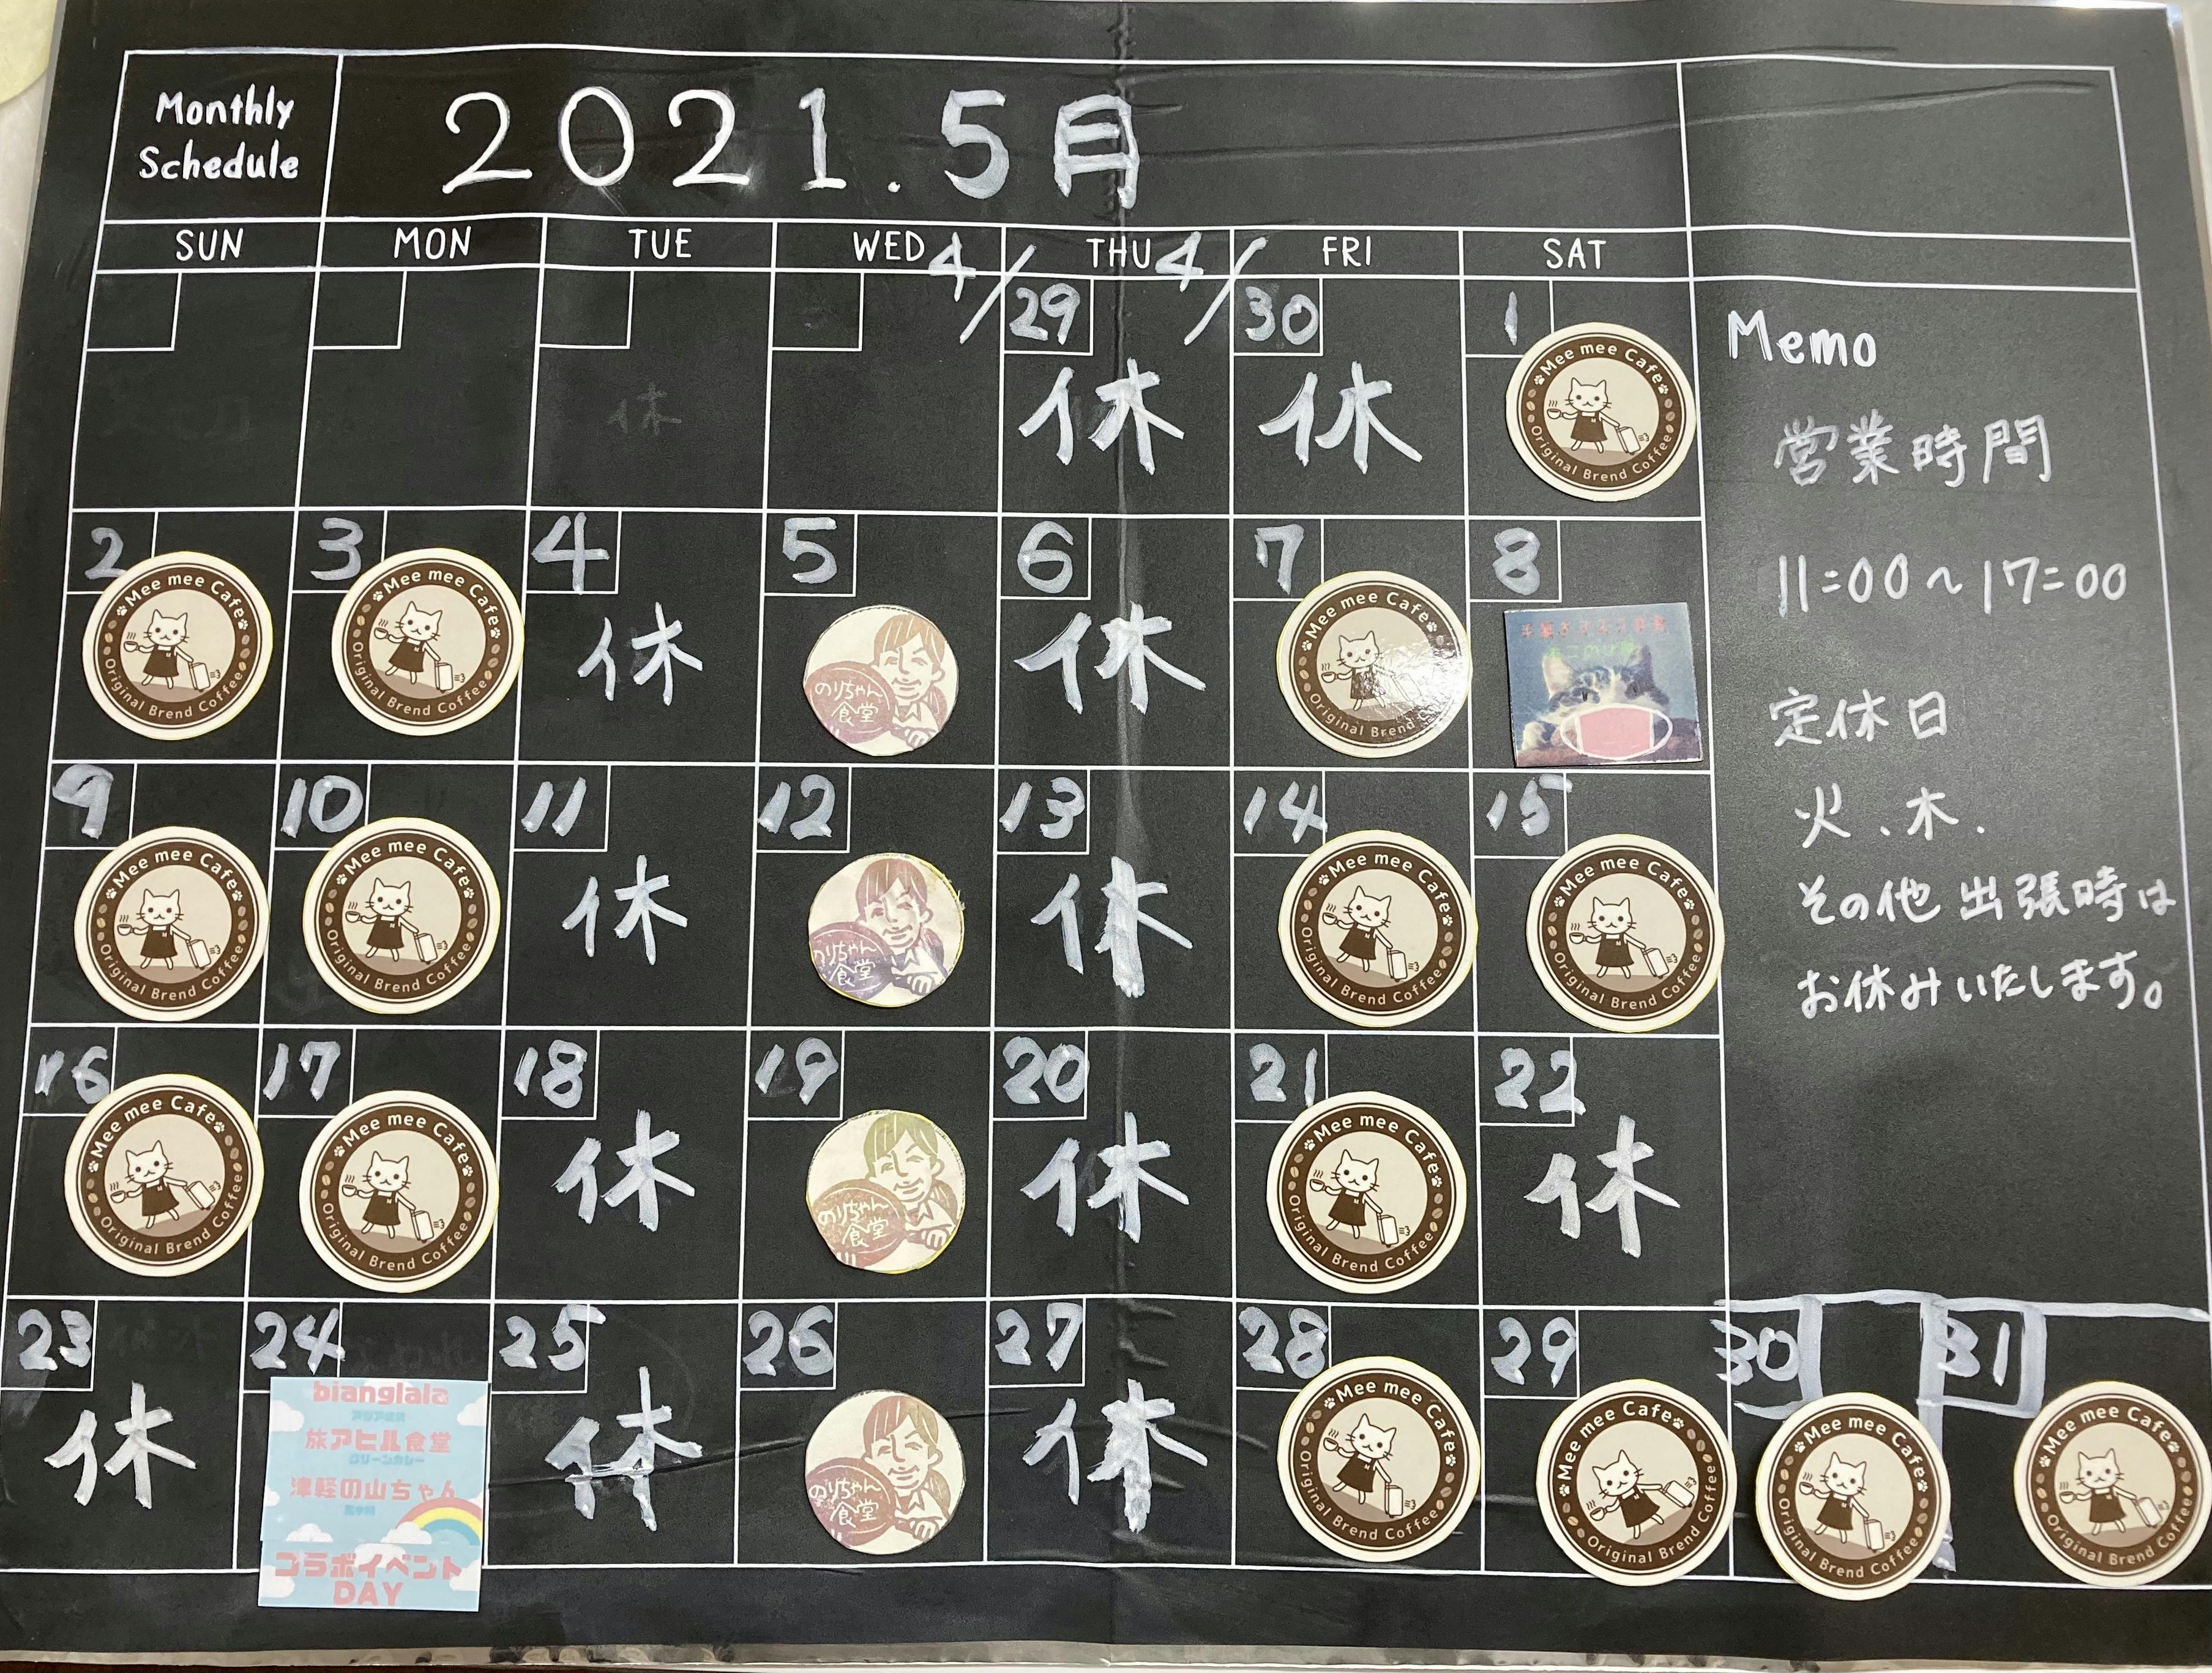 Monthly
Schedule
2021.5月
SUN MON TUE WED THU FRI SAT
4/29 4/30 1
休 休 Mee mee Cafe Original Brend Coffee
休
2 3 4 5 6 7 8
Mee mee Cafe Original Brend Coffee Mee mee Cafe Original Brend Coffee 休 のりちゃん食堂 休 Mee mee Cafe Original Brend Coffee
9 10 11 12 13 14 15
Mee mee Cafe Original Brend Coffee Mee mee Cafe Original Brend Coffee 休 のりちゃん食堂 休 Mee mee Cafe Original Brend Coffee Mee mee Cafe Original Brend Coffee
16 17 18 19 20 21 22
Mee mee Cafe Original Brend Coffee Mee mee Cafe Original Brend Coffee 休 のりちゃん食堂 休 Mee mee Cafe Original Brend Coffee 休
23 24 25 26 27 28 29 30 31
休
bianglala
旅アヒル食堂
グリーンカレー
津軽の山ちゃん
コラボイベント
DAY
休 のりちゃん食堂 休 Mee mee Cafe Original Brend Coffee Mee mee Cafe Original Brend Coffee Mee mee Cafe Original Brend Coffee Mee mee Cafe Original Brend Coffee
Memo
営業時間
11:00~17:00
定休日
火、木、
その他出張時は
お休みいたします。